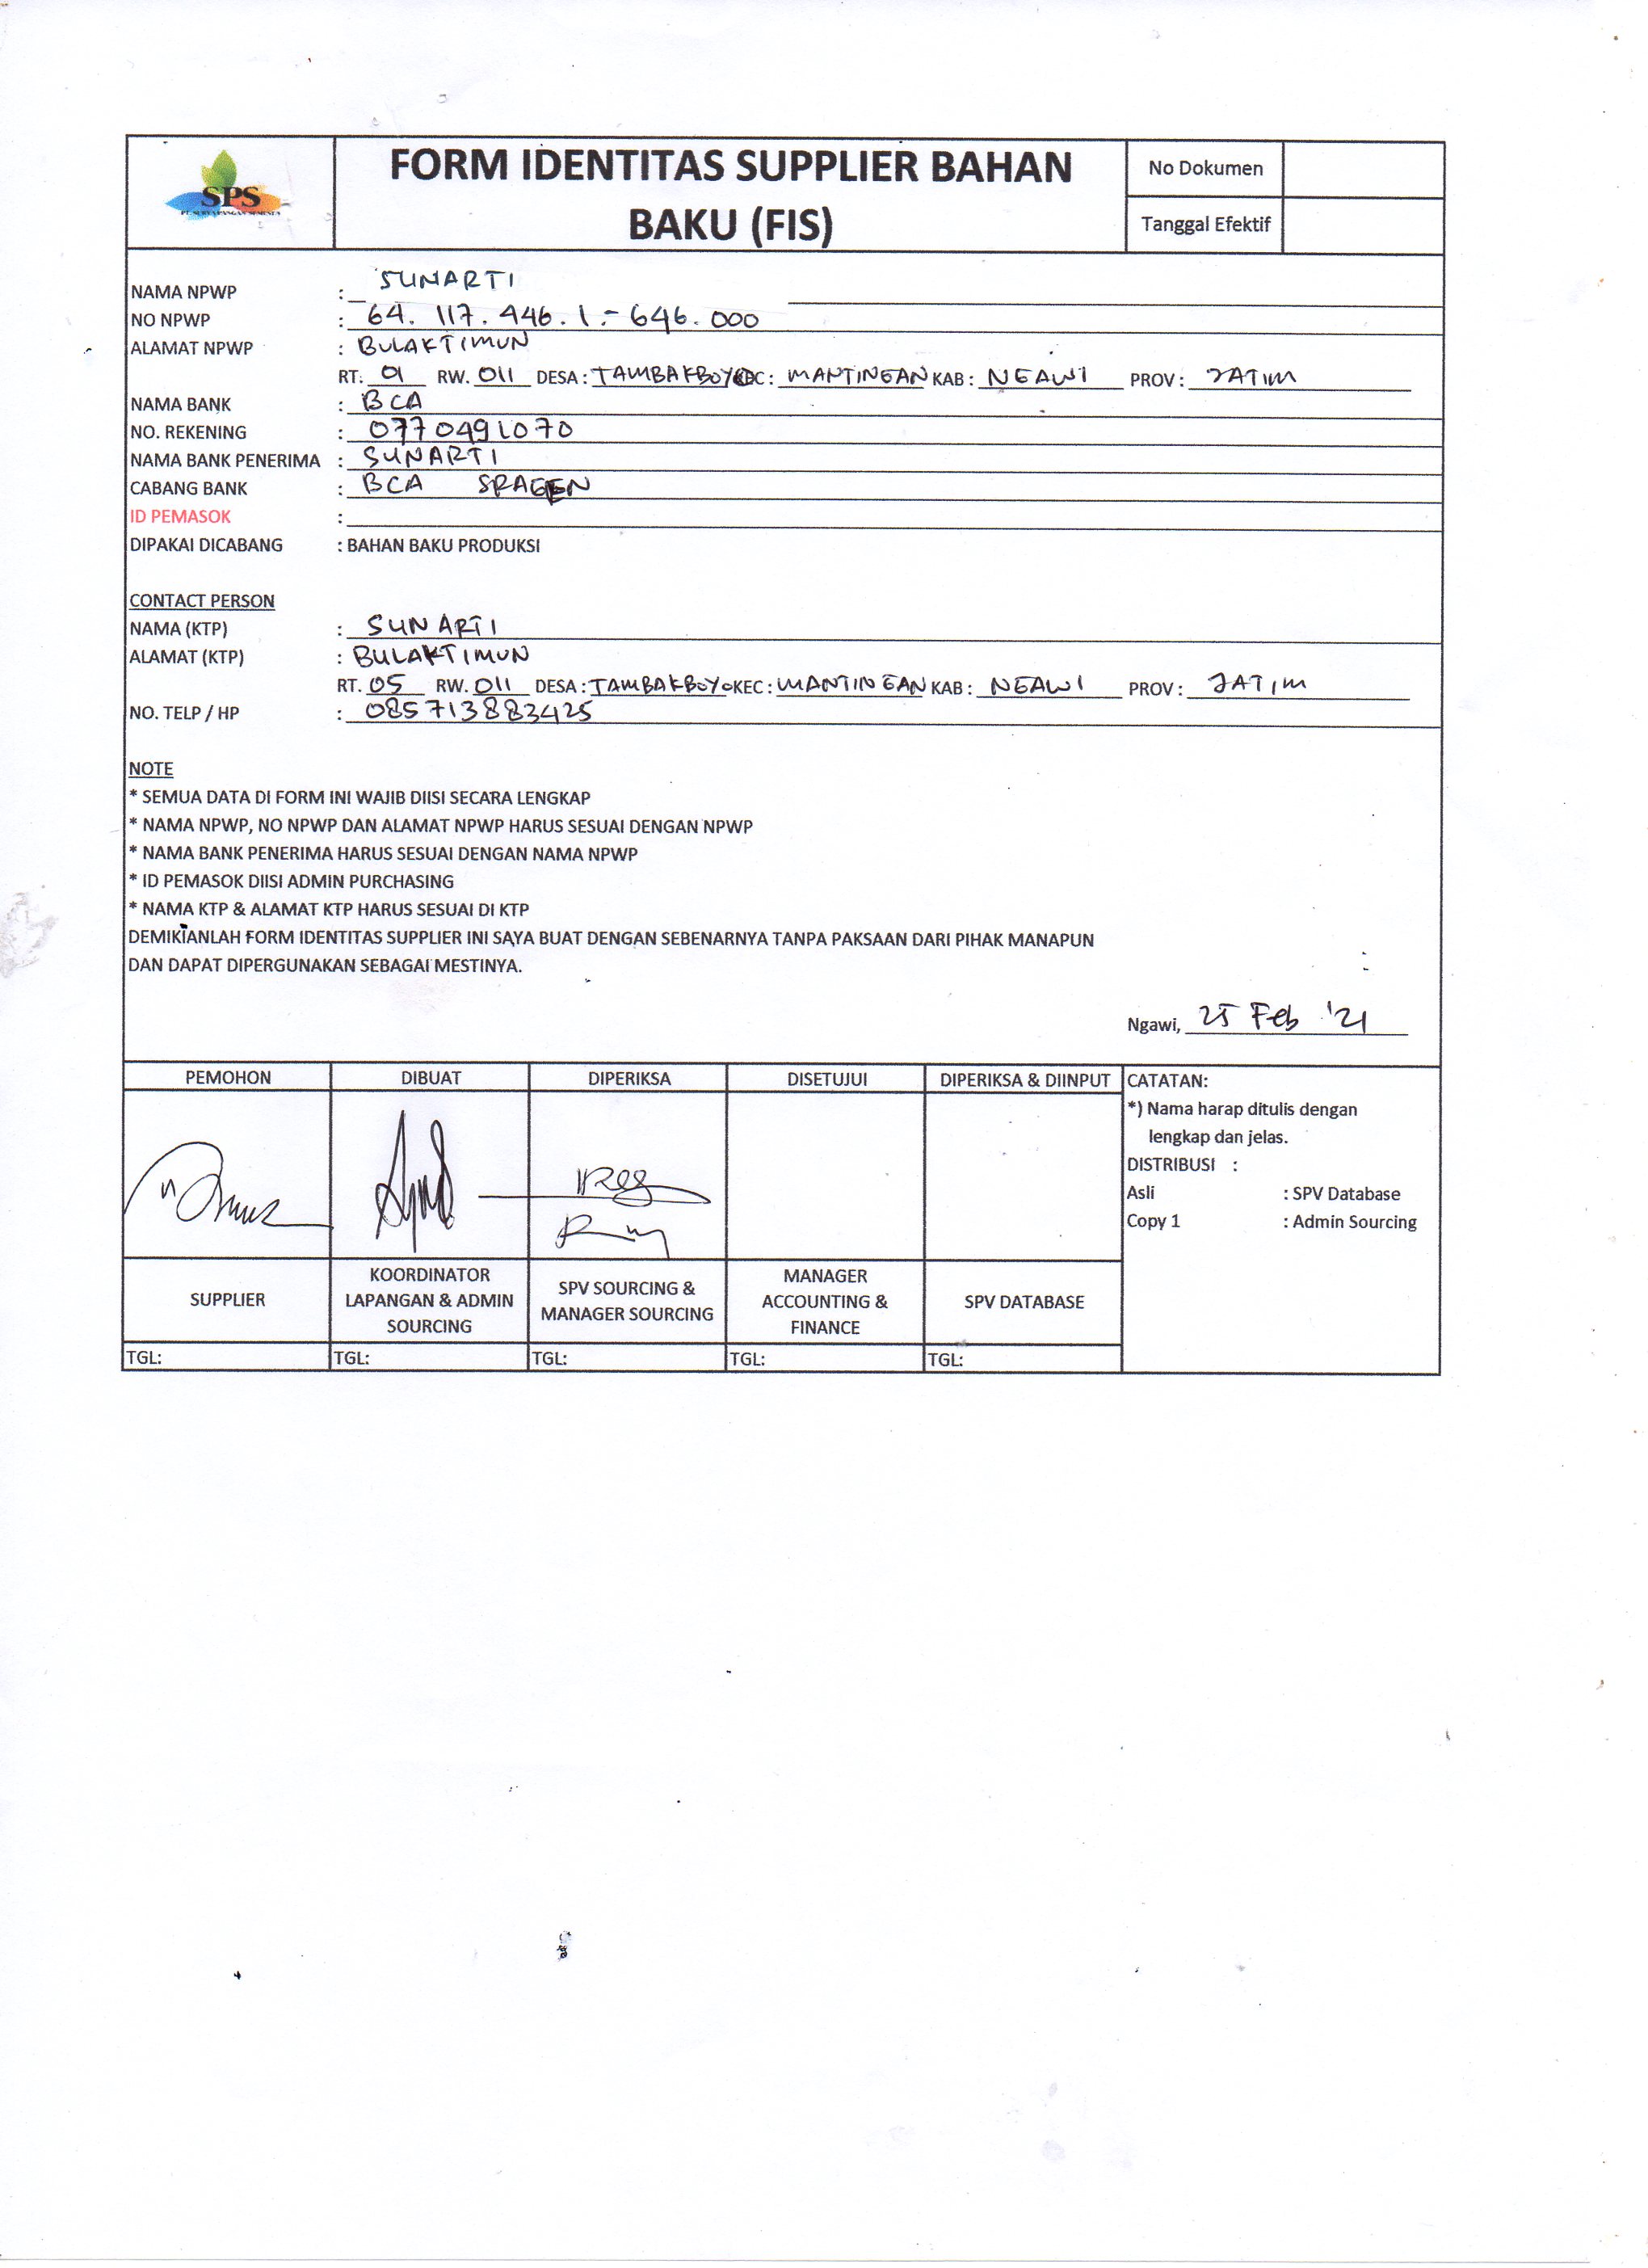 SPS
FORM IDENTITAS SUPPLIER BAHAN
BAKU (FIS)
No Dokumen
Tanggal Efektif
NAMA NPWP : SUNARTI
NO NPWP : 64. 117. 446. 1.- 646. 000
ALAMAT NPWP : BULAKTIMUN
RT: 01 RW. 011 DESA : TAMBAKBOYO KEC : MANTINGAN KAB : NGAWI PROV : JATIM
NAMA BANK : BCA
NO. REKENING : 0770491070
NAMA BANK PENERIMA : SUNARTI
CABANG BANK : BCA SRAGEN
ID PEMASOK :
DIPAKAI DICABANG : BAHAN BAKU PRODUKSI
CONTACT PERSON
NAMA (KTP) : SUNARTI
ALAMAT (KTP) : BULAKTIMUN
RT. 05 RW. 011 DESA : TAMBAKBOYO KEC : MANTINGAN KAB : NGAWI PROV : JATIM
NO. TELP / HP : 085713883425
NOTE
* SEMUA DATA DI FORM INI WAJIB DIISI SECARA LENGKAP
* NAMA NPWP, NO NPWP DAN ALAMAT NPWP HARUS SESUAI DENGAN NPWP
* NAMA BANK PENERIMA HARUS SESUAI DENGAN NAMA NPWP
* ID PEMASOK DIISI ADMIN PURCHASING
* NAMA KTP & ALAMAT KTP HARUS SESUAI DI KTP
DEMIKIANLAH FORM IDENTITAS SUPPLIER INI SAYA BUAT DENGAN SEBENARNYA TANPA PAKSAAN DARI PIHAK MANAPUN
DAN DAPAT DIPERGUNAKAN SEBAGAI MESTINYA.
Ngawi, 25 Feb '21
PEMOHON DIBUAT DIPERIKSA DISETUJUI DIPERIKSA & DIINPUT CATATAN:
*) Nama harap ditulis dengan
lengkap dan jelas.
DISTRIBUSI :
Asli : SPV Database
Copy 1 : Admin Sourcing
SUPPLIER
KOORDINATOR
LAPANGAN & ADMIN
SOURCING
SPV SOURCING &
MANAGER SOURCING
MANAGER
ACCOUNTING &
FINANCE
SPV DATABASE
TGL: TGL: TGL: TGL: TGL: